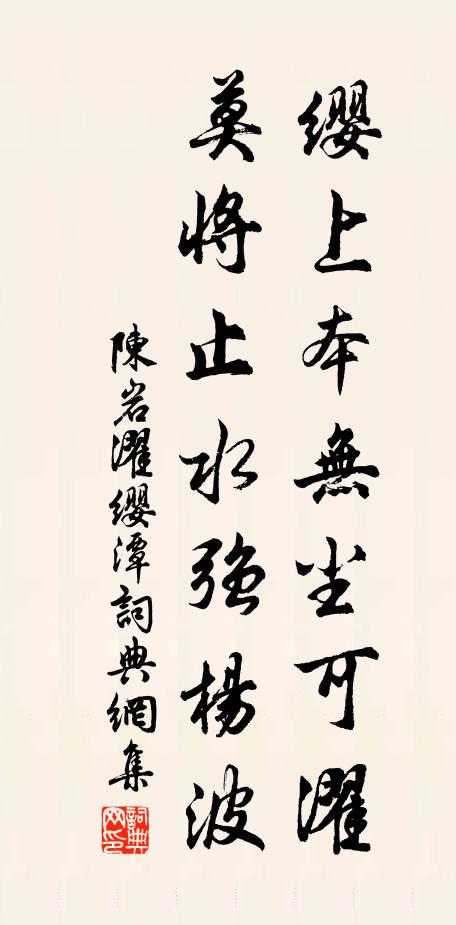 纓上本無尘可濯
莫將止水強楊波
陳岩濯纓潭詞典網集
詞典网印